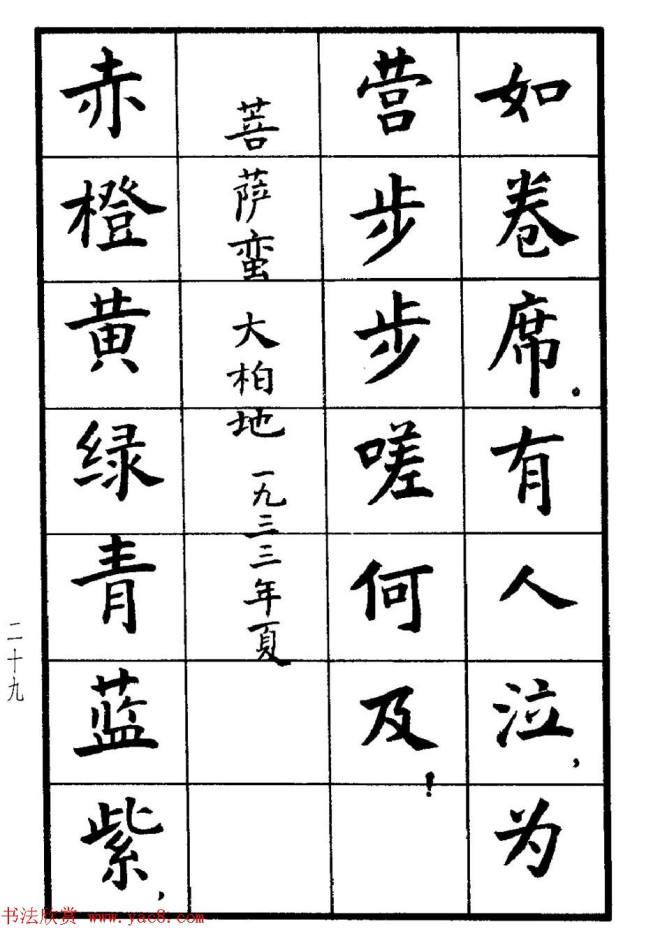 如卷席。有人泣，为
营步步嗟何及！
菩萨蛮 大柏地 一九三三年夏
赤橙黄绿青蓝紫，
二十九
书法欣赏 www.yac8.com